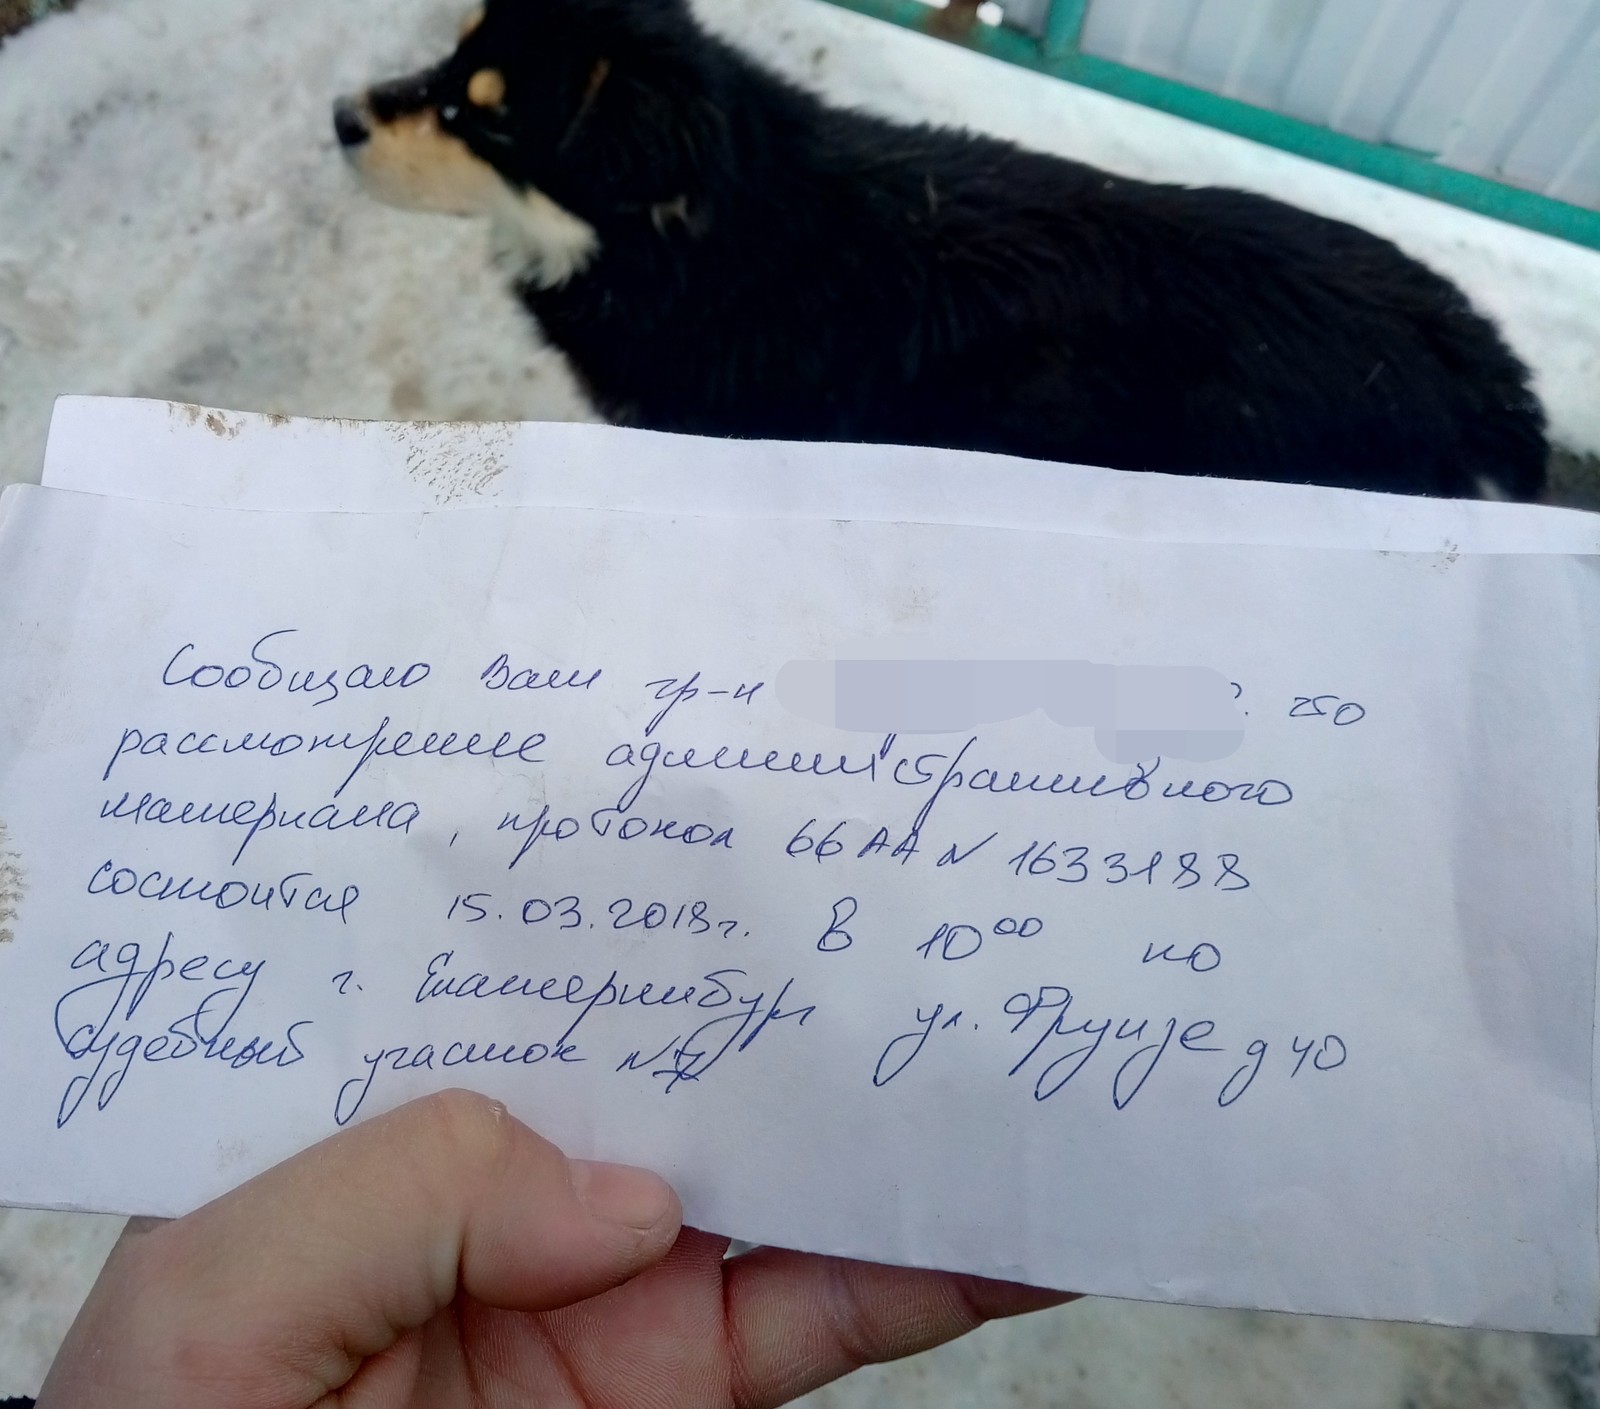 Сообщаю Вам гр-н
рассмотрение административного
материала, протокол 66 АА N 1633188
состоится 15.03.2018г. В 10⁰⁰ по
адресу г. Екатеринбург ул. Фрунзе д 40
судебный участок N7